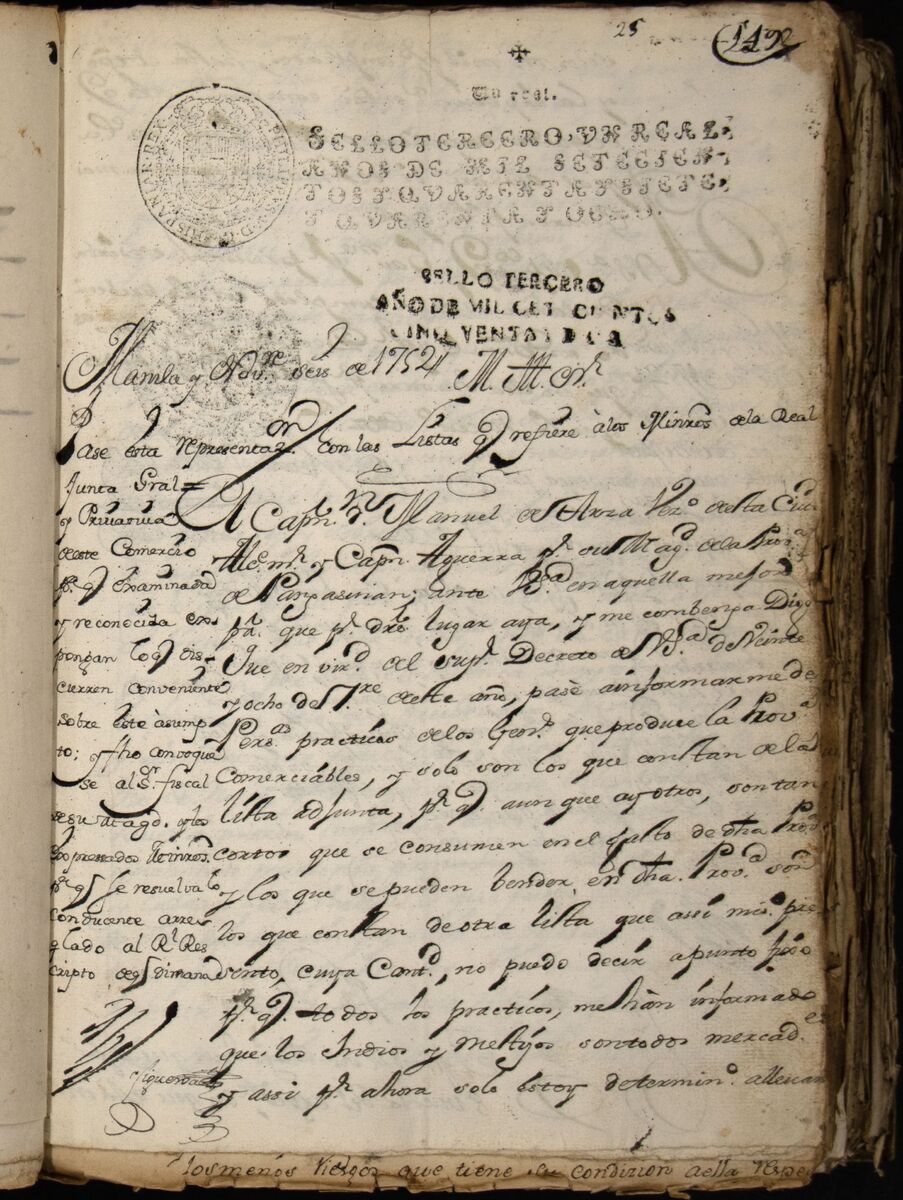 25
149
Un real.
SELLO TERCERO, VN REAL,
AÑOS DE MIL SETECIEN-
TOS Y QVARENTA Y SIETE,
Y QVARENTA Y OCHO.
PHILIPPUS V. D. G. HISPANIAR. REX
SELLO TERCERO
AÑO DE MIL CET CIENTOS
CINQVENTA Y DOS
Manila y Novre. seis de 1752
Pase esta representazon. con las Listas q refiere à los Minros de la Real
Junta Gral
y Privativa
de este Comercio
pa. q examinada
y reconocida ex
pongan lo q dis-
curren conveniente
sobre este àsump
to; y fho convoque
se al Sr. fiscal
de su Magd. y los
expressados Minros.
pa. q se resuelva lo
conducente arre
glado al Rl. Res
cripto de q dimana
El Capn. Dn. Manuel de Arza Vezo. de esta Ciud
Alce. mr. y Capn. Aguerra pr. su Magd. de la Prova.
de Pangasinan; ante Vs.a en aquella mejor
fa. que pr. dro. lugar aya, y me combenga Digo
Que en vird. del supr. Decreto de Vs.a de Veinte
y ocho de 7re. de este año, pasè ainformarme de
Persas. practicas de los Geros. que produce la Prova.
Comerciàbles, y solo son los que constan de la
lista adjunta, pr. q. aunque ay otros, son tan
cortos que se consumen en el gasto de dha Prova.
y los que se pueden bender en dha. Prova. son
los que constan de otra lista que assi mismo. pre
sento, cuya Cantd., no puedo decir apunto fixo
pr. q. todos los practicos, me hàn informado
que los Indios y mestisos son todos mercades.
y assi pr. ahora solo estoy determino. allevar
los menos riesgos que tiene su condizion aella